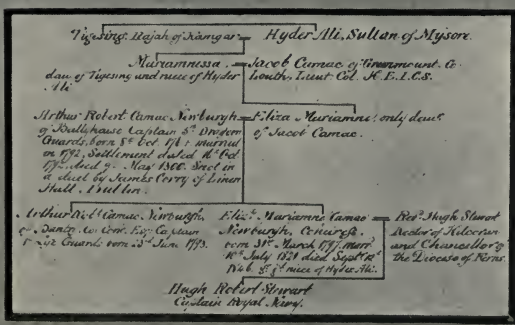 Tigesing, Rajah of Ramgar
Hyder Ali, Sultan of Mysore.
Mariamnessa
dau of Tigesing and niece of Hyder
Ali
Jacob Camac of Greenmount Co
Louth, Lieut. Col. H.E.I.C.S.
Arthur Robert Camac Newburgh
of Ballyhaise Captain 5th Dragoon
Guards, born 8th Oct. married
in 1792, Settlement dated 16th Oct
1792, died 9 May 1800. Shot in
a duel by James Corry of Linen
Hall, Dublin.
Eliza Mariamne, only dau
of Jacob Camac.
Arthur Robt Camac Newburgh,
Co Esq. Captain
Guards born 23d June 1793.
Elizth Mariamne Camac
Newburgh, Coheiress,
born 31st March 1797, marr
18th July 1821 died Septr 12th
1846. niece of Hyder Ali.
Revd Hugh Stewart
Rector of
and Chancellor of
the Diocese of Ferns.
Hugh Robert Stewart
Captain Royal Navy.